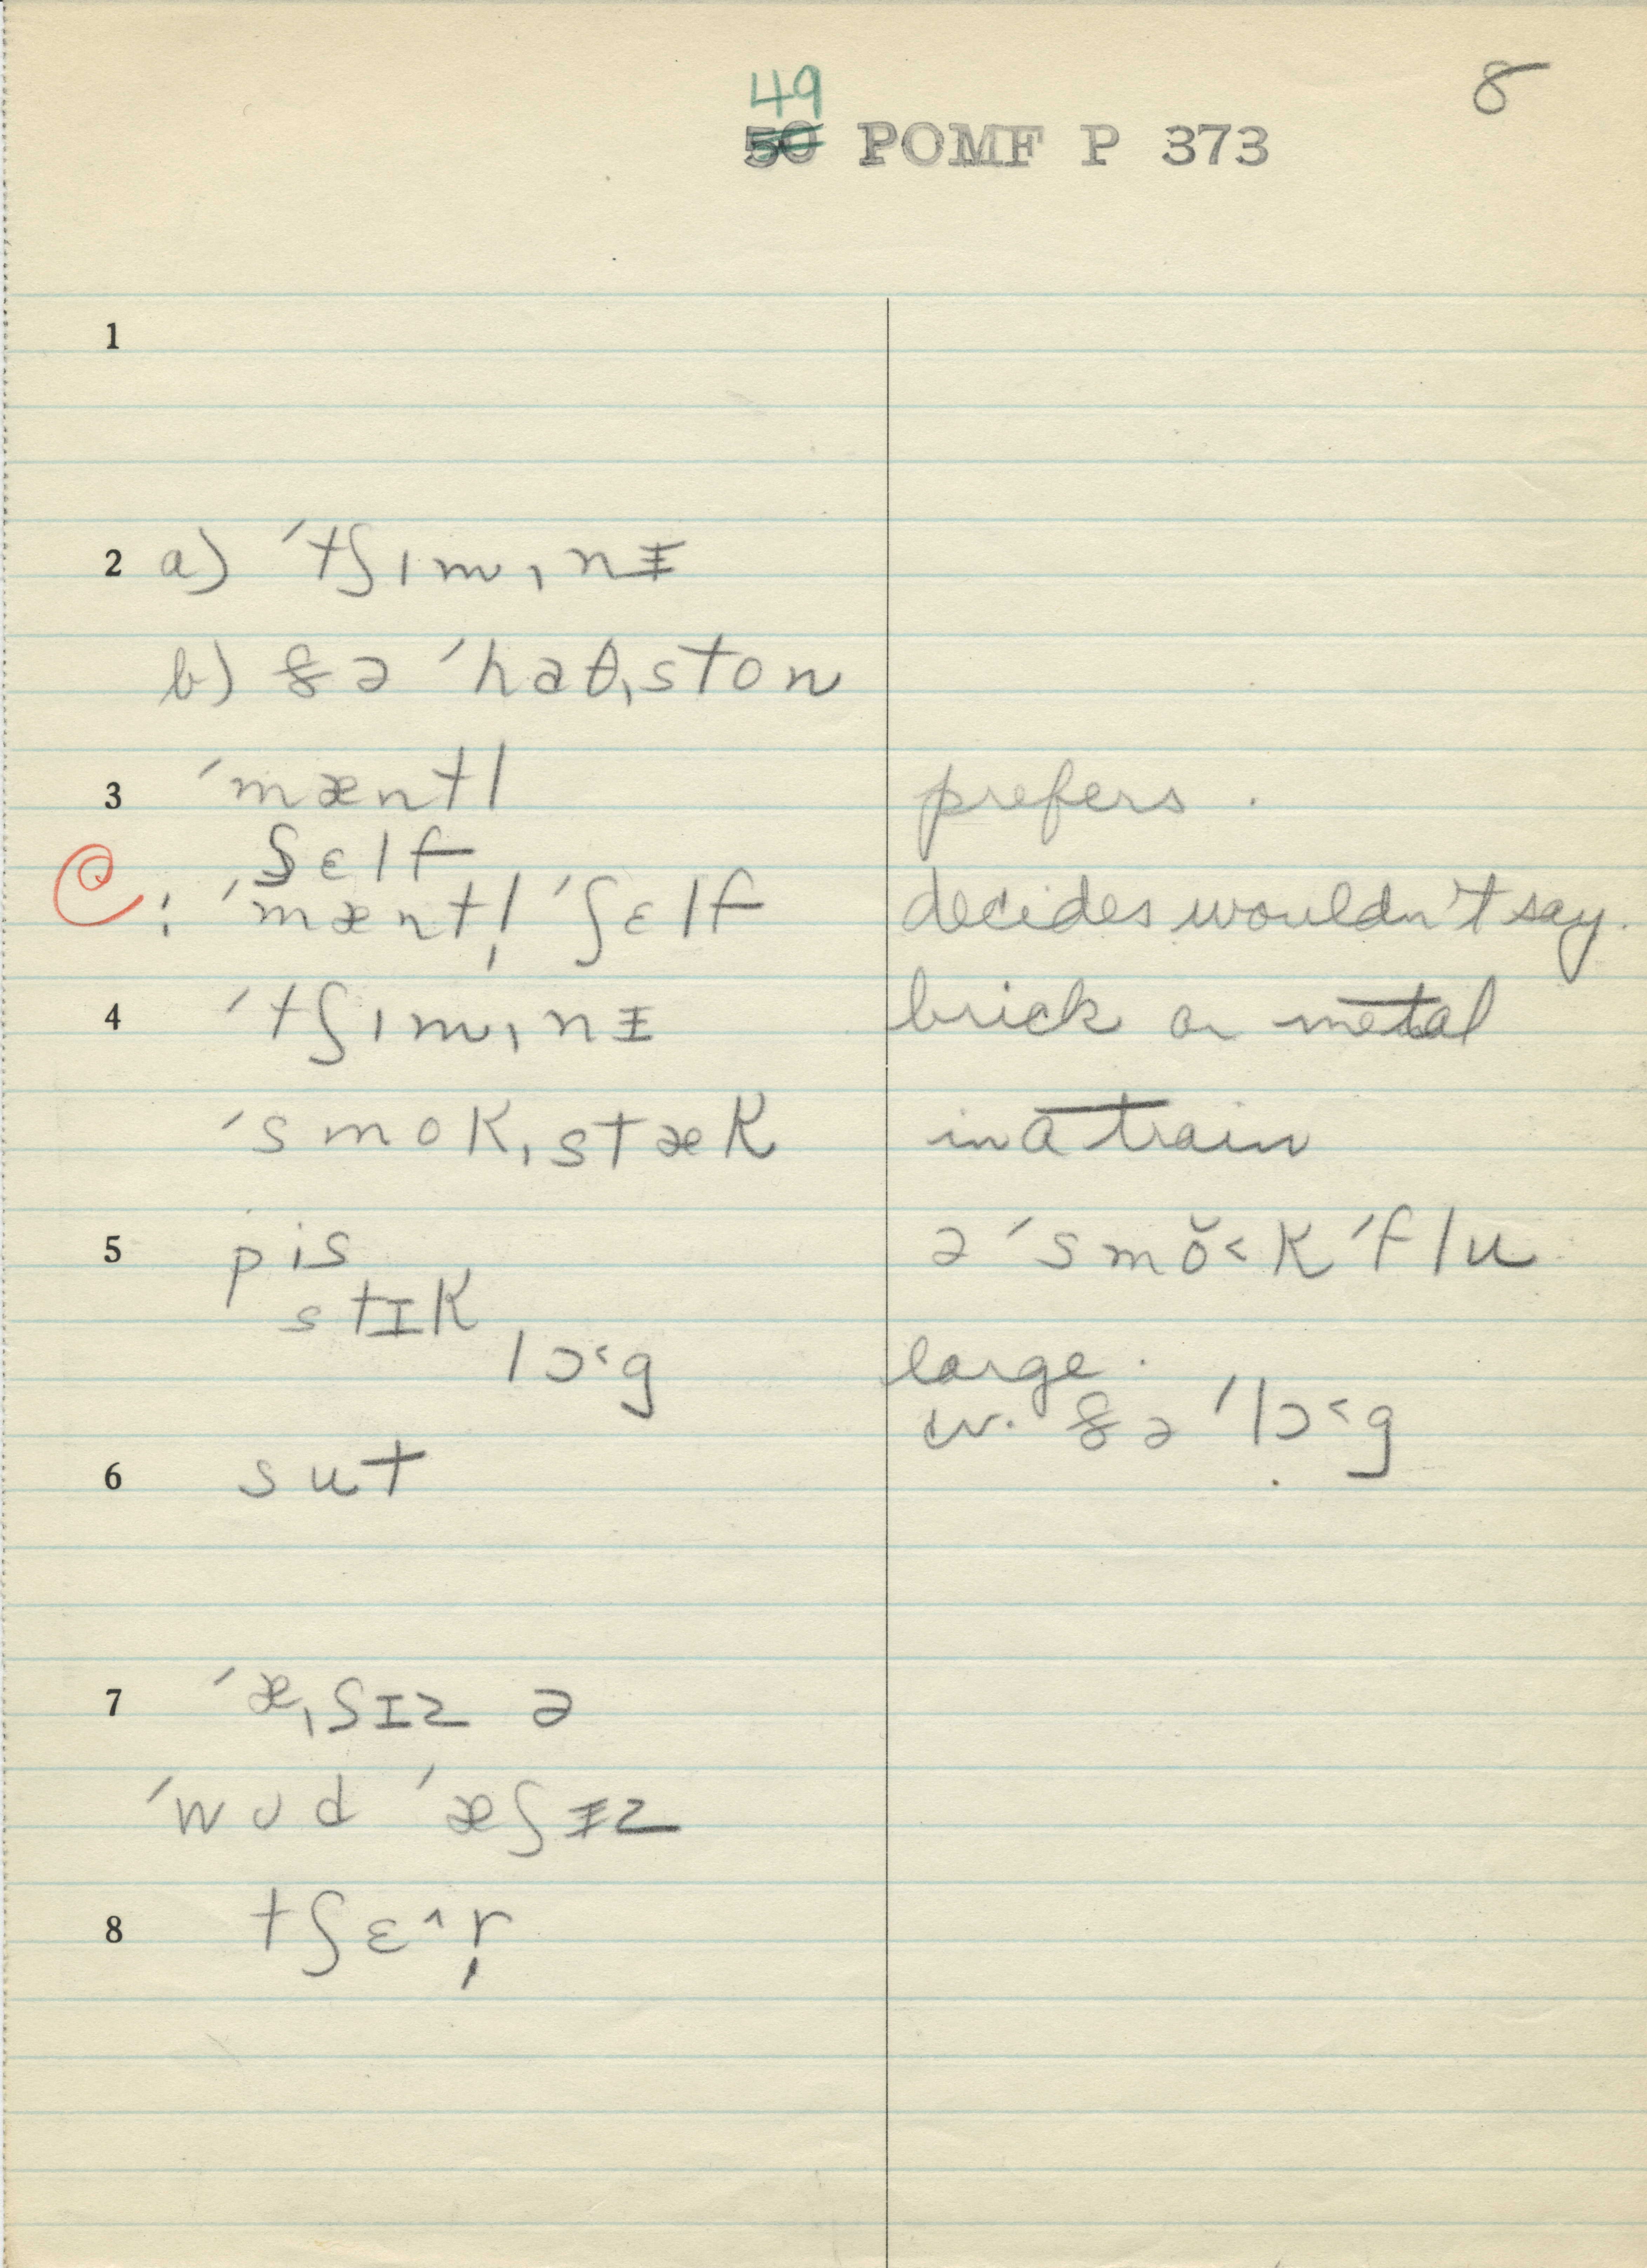 49
8
50 POMF P 373
1
2 a) ˈtʃɪmˌnɪ̵
b) ðə ˈhaθˌston
3 ˈmæntl prefers.
ʃɛlf
C: ˈmæntl̩ ˈʃɛlf decides wouldn't say.
4 ˈtʃɪmˌnɪ̵ brick or metal
ˈsmokˌstæk in a train
5 pis ə ˈsmŏ˂k ˈflu
stɪk
lɔ˂g large.
w. ðə ˈlɔ˂g
6 sut
7 ˈæˌʃɪz ə
ˈwʊd ˈæʃɪ̵z
8 tʃɛ^r̩